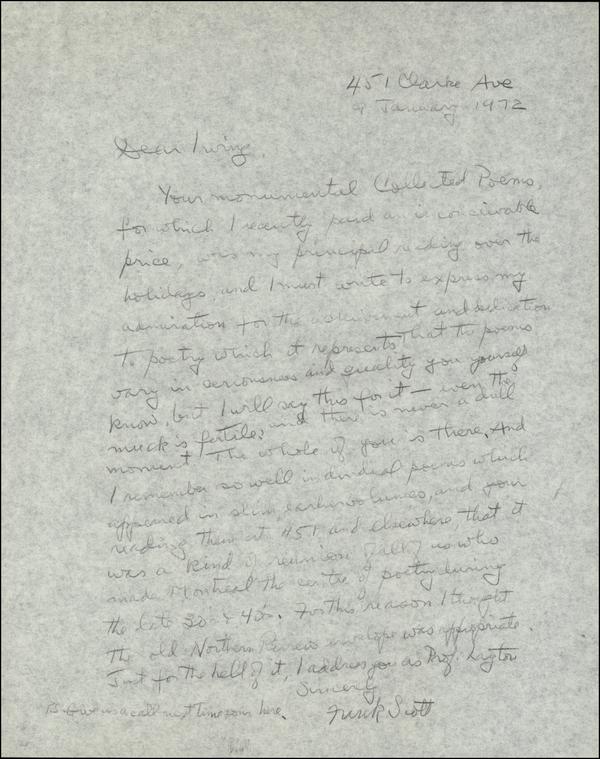 451 Clarke Ave
9 January 1972
Dear Irving,
Your monumental Collected Poems,
for which I recently paid an inconceivable
price, was my principal reading over the
holidays, and I must write to express my
admiration for the achievement and dedication
to poetry which it represents. That the poems
vary in seriousness and quality you yourself
know, but I will say this for it — even the
muck is fertile, and there is never a dull
moment. The whole of you is there. And
I remember so well individual poems which
appeared in slim, earlier volumes, and your
reading them at 451 and elsewhere, that it
was a kind of reunion of all of us who
made Montreal the centre of poetry during
the late 30's & 40's. For this reason I thought
the old Northern Review envelope was appropriate.
Just for the hell of it, I address you as Prof. Layton
Sincerely
Frank Scott
P.S. Give us a call next time you're here.